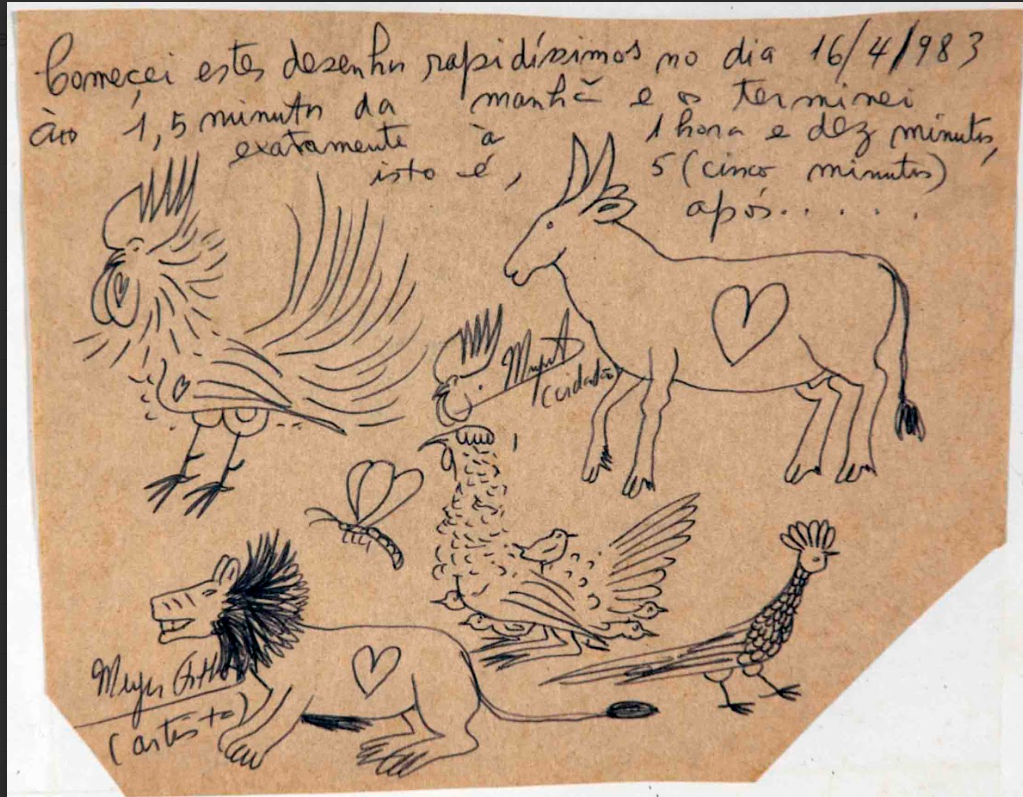 Começei estes desenhos rapidíssimos no dia 16/4/983
às 1,5 minutos da manhã e os terminei
exatamente à 1 hora e dez minutos,
isto é, 5 (cinco minutos)
após.....
cuidado
Meyer Filho
(artista)